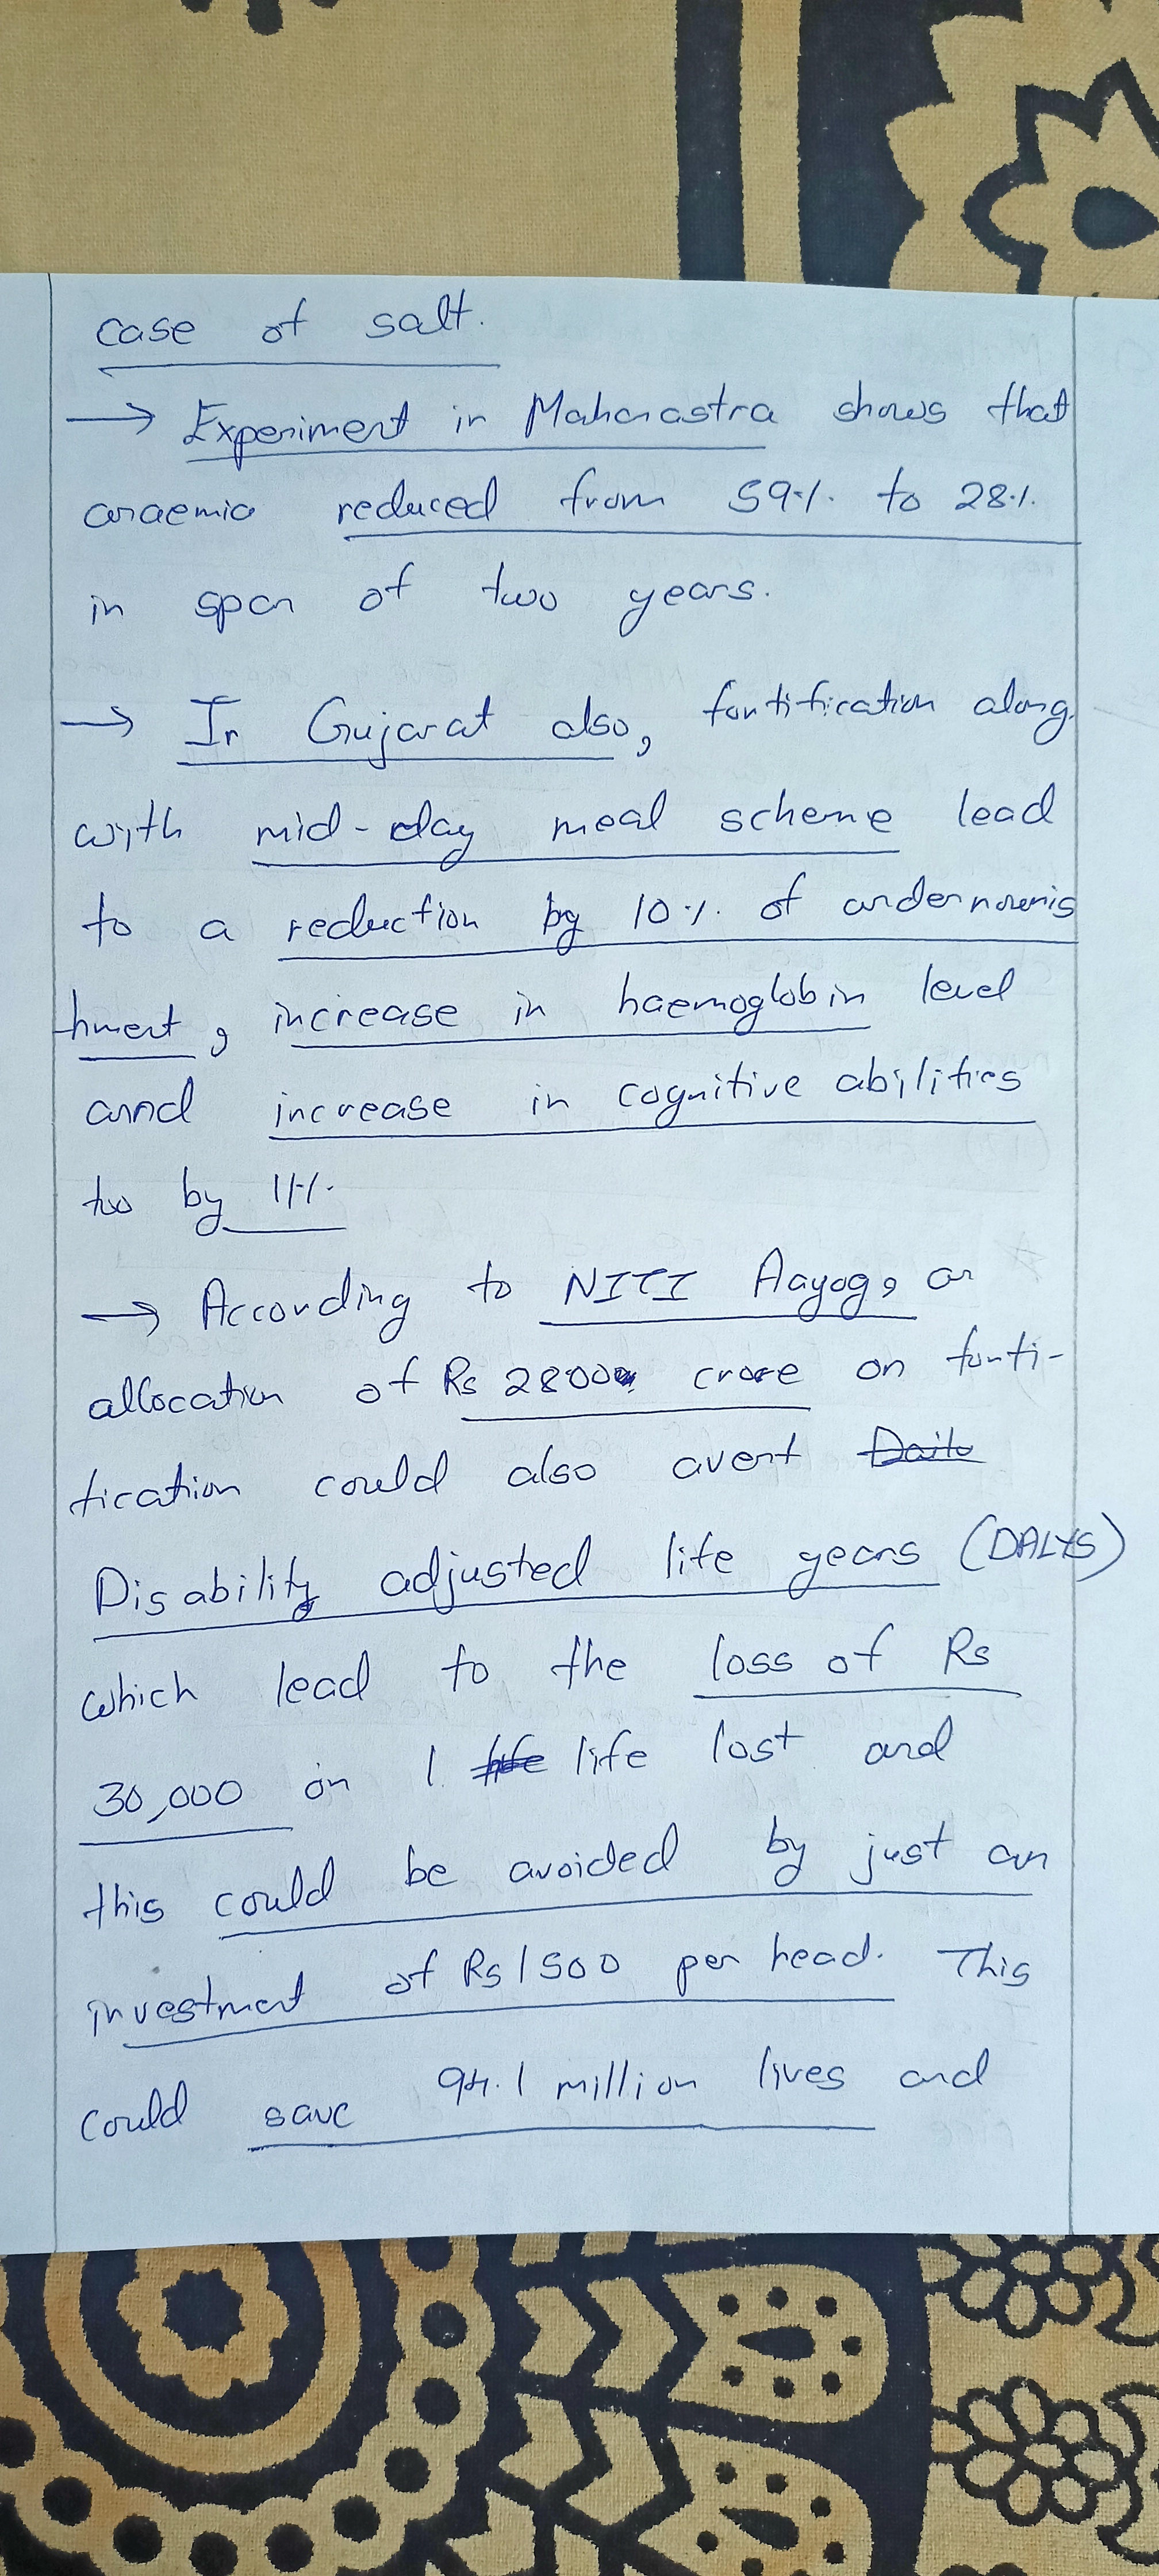 case of salt.
→ Experiment in Maharastra shows that
anaemia reduced from 59% to 28%
in span of two years.
→ In Gujarat also, fortification along
with mid-day meal scheme lead
to a reduction by 10% of undernouris
hment, increase in haemoglobin level
annd increase in cognitive abilities
too by 11%
→ According to NITI Aayog, an
allocation of Rs 2800 crore on forti-
fication could also avert Daily
Disability adjusted life years (DALYS)
which lead to the loss of Rs
30,000 on 1 life life lost and
this could be avoided by just an
investment of Rs 1500 per head. This
could save 94.1 million lives and